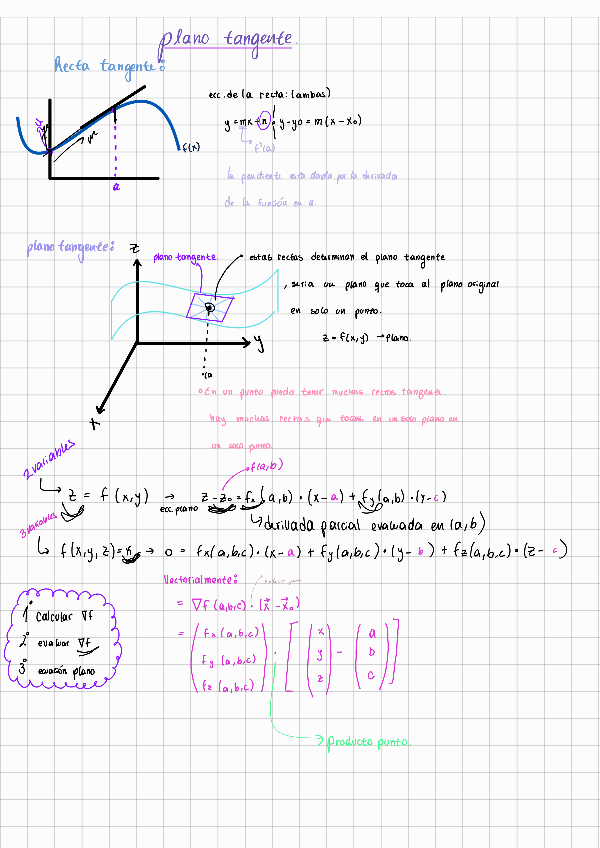 plano tangente.
Recta tangente:
ecc. de la recta: (ambas)
y = mx + n ; y - yo = m (x - xo)
f'(a)
f(x)
a
la pendiente esta dada por la derivada
de la función en a.
plano tangente:
z
plano tangente.
estas rectas determinan el plano tangente
, seria un plano que toca al plano original
en solo un punto.
z = f(x,y) → plano.
P
y
x
En un punto puedo tener muchas rectas tangente
hay muchas rectas que tocan en un solo plano en
un solo punto.
2 variables
f(a,b)
z = f (x,y) → z - zo = fx (a,b) · (x - a) + fy (a,b) · (y - c)
ecc. plano
derivada parcial evaluada en (a,b)
3 variables
f(x,y,z) = k → 0 = fx(a,b,c) · (x - a) + fy(a,b,c) · (y - b) + fz(a,b,c) · (z - c)
Vectorialmente:
= ∇f (a,b,c) · (x⃗ - x⃗o)
= ( fx (a,b,c) ) · [ ( x ) - ( a ) ]
fy (a,b,c) y b
fz (a,b,c) z c
1° Calcular ∇f
2° evaluar ∇f
3° ecuación plano
Producto punto.